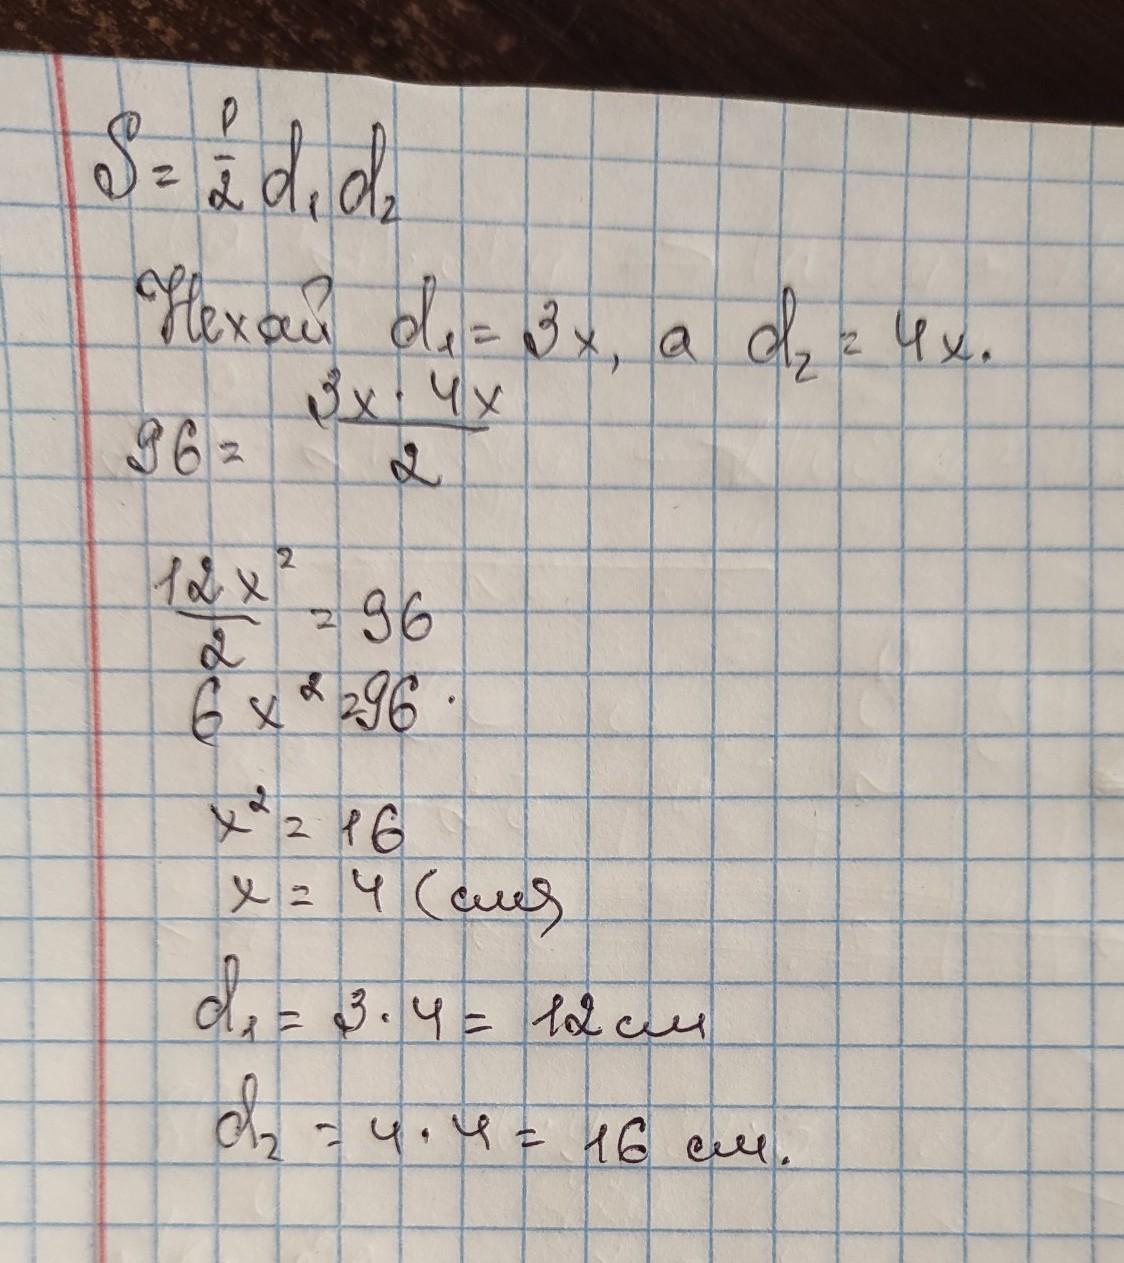 S = 1/2 d₁ d₂
Нехай d₁ = 3x, а d₂ = 4x.
96 = 3x · 4x / 2
12x² / 2 = 96
6x² = 96 ·
x² = 16
x = 4 (см)
d₁ = 3 · 4 = 12 см
d₂ = 4 · 4 = 16 см.